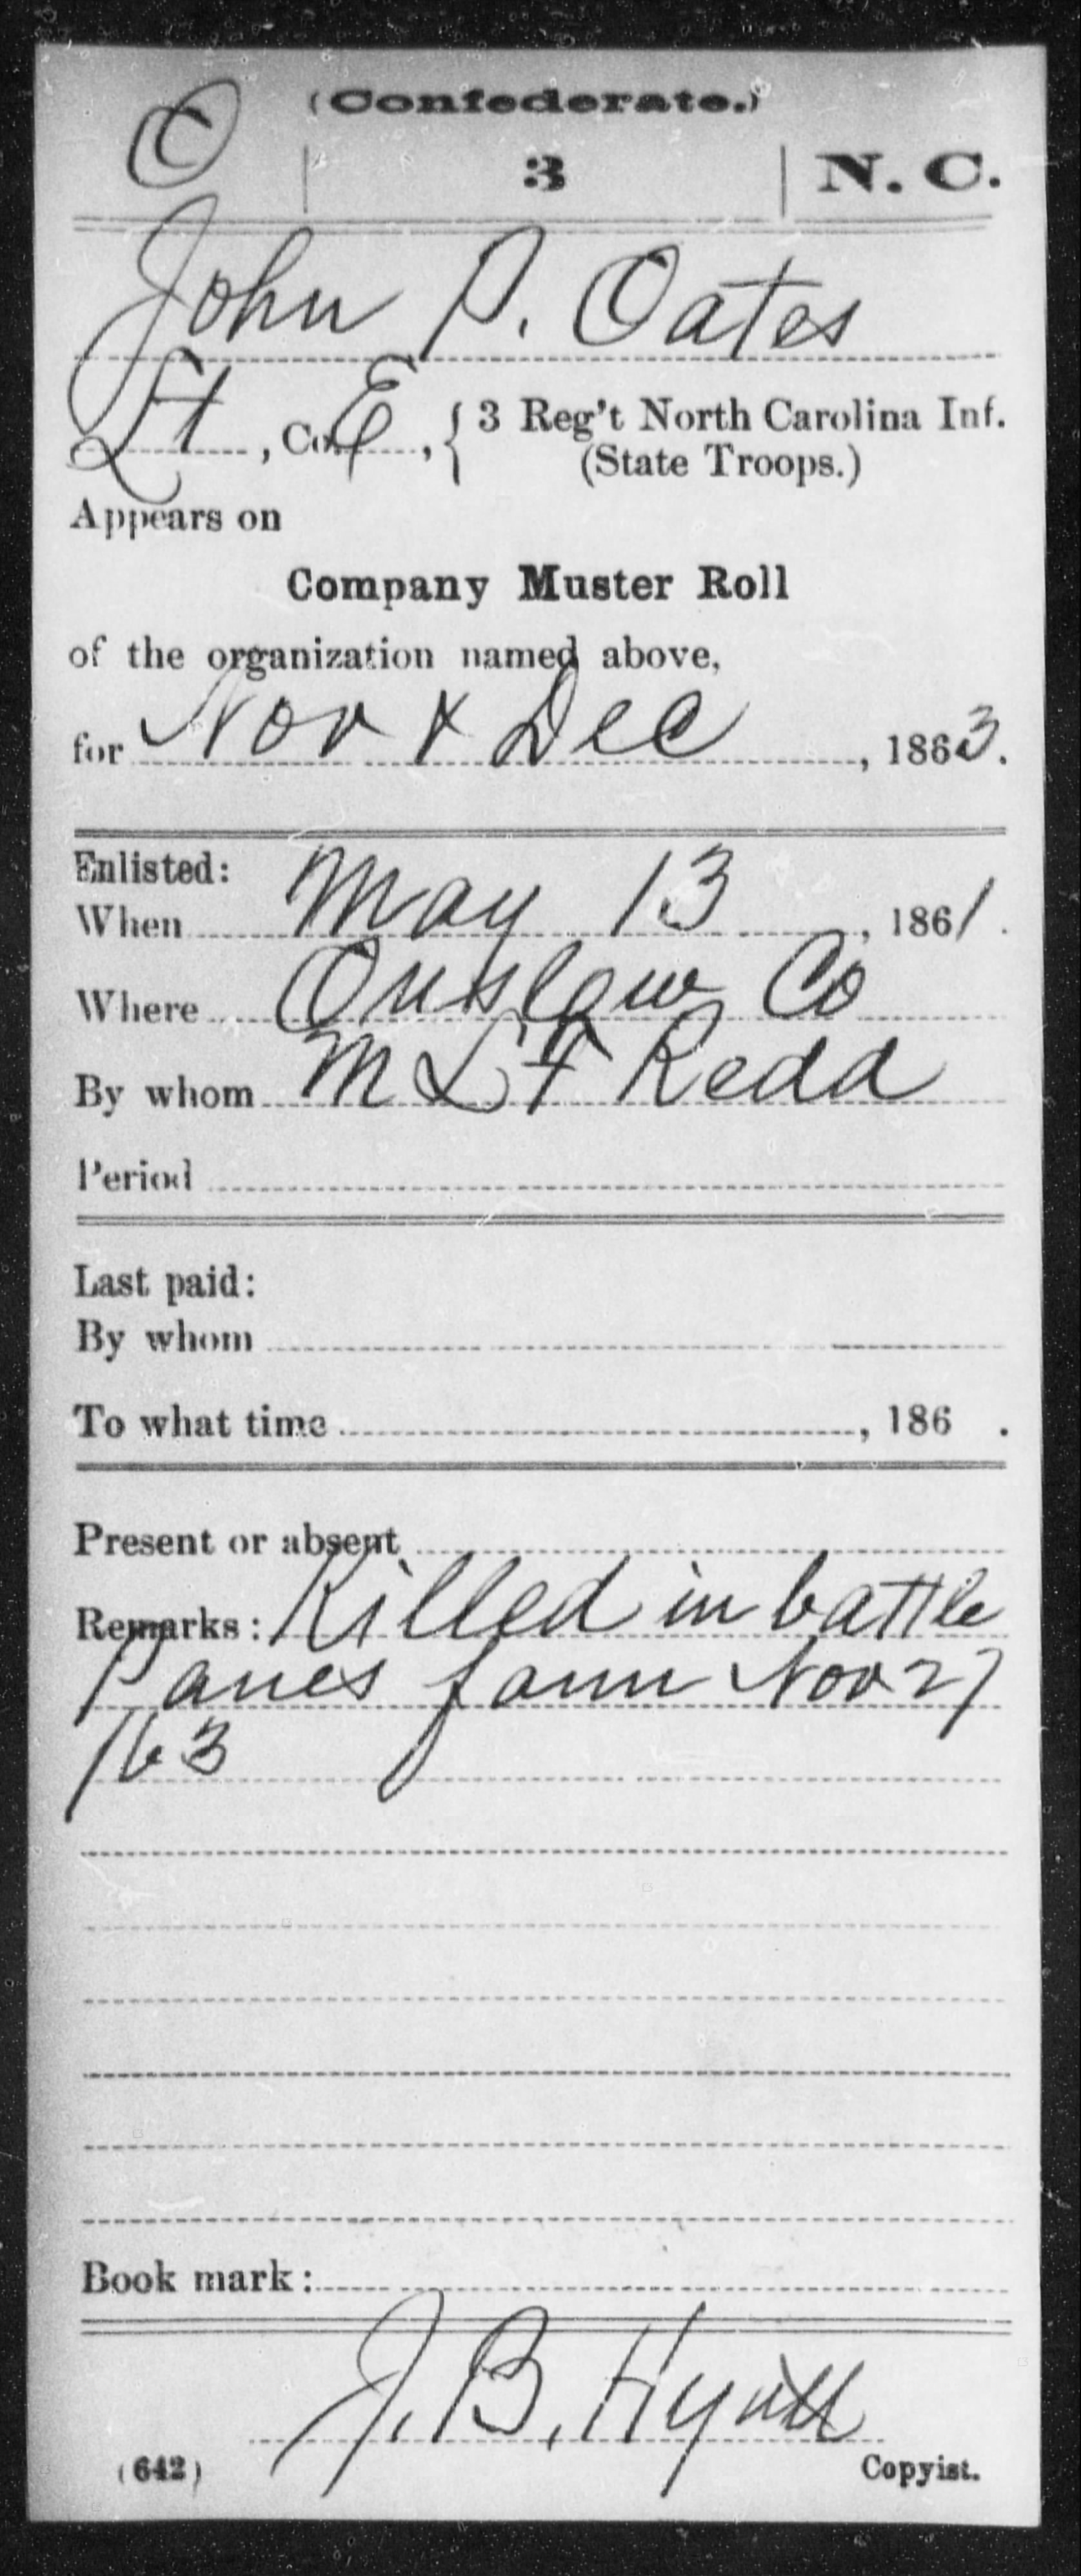 (Confederate.)
O | 3 | N. C.
John P. Oates
Lt, Co. E, { 3 Reg't North Carolina Inf.
(State Troops.)
Appears on
Company Muster Roll
of the organization named above,
for Nov & Dec, 1863.
Enlisted:
When May 13, 1861.
Where Onslow Co
By whom M L F Redd
Period
Last paid:
By whom
To what time, 186 .
Present or absent
Remarks: Killed in battle
Panes farm Nov 27
/63
Book mark:
J. B. Hyatt
(642) Copyist.